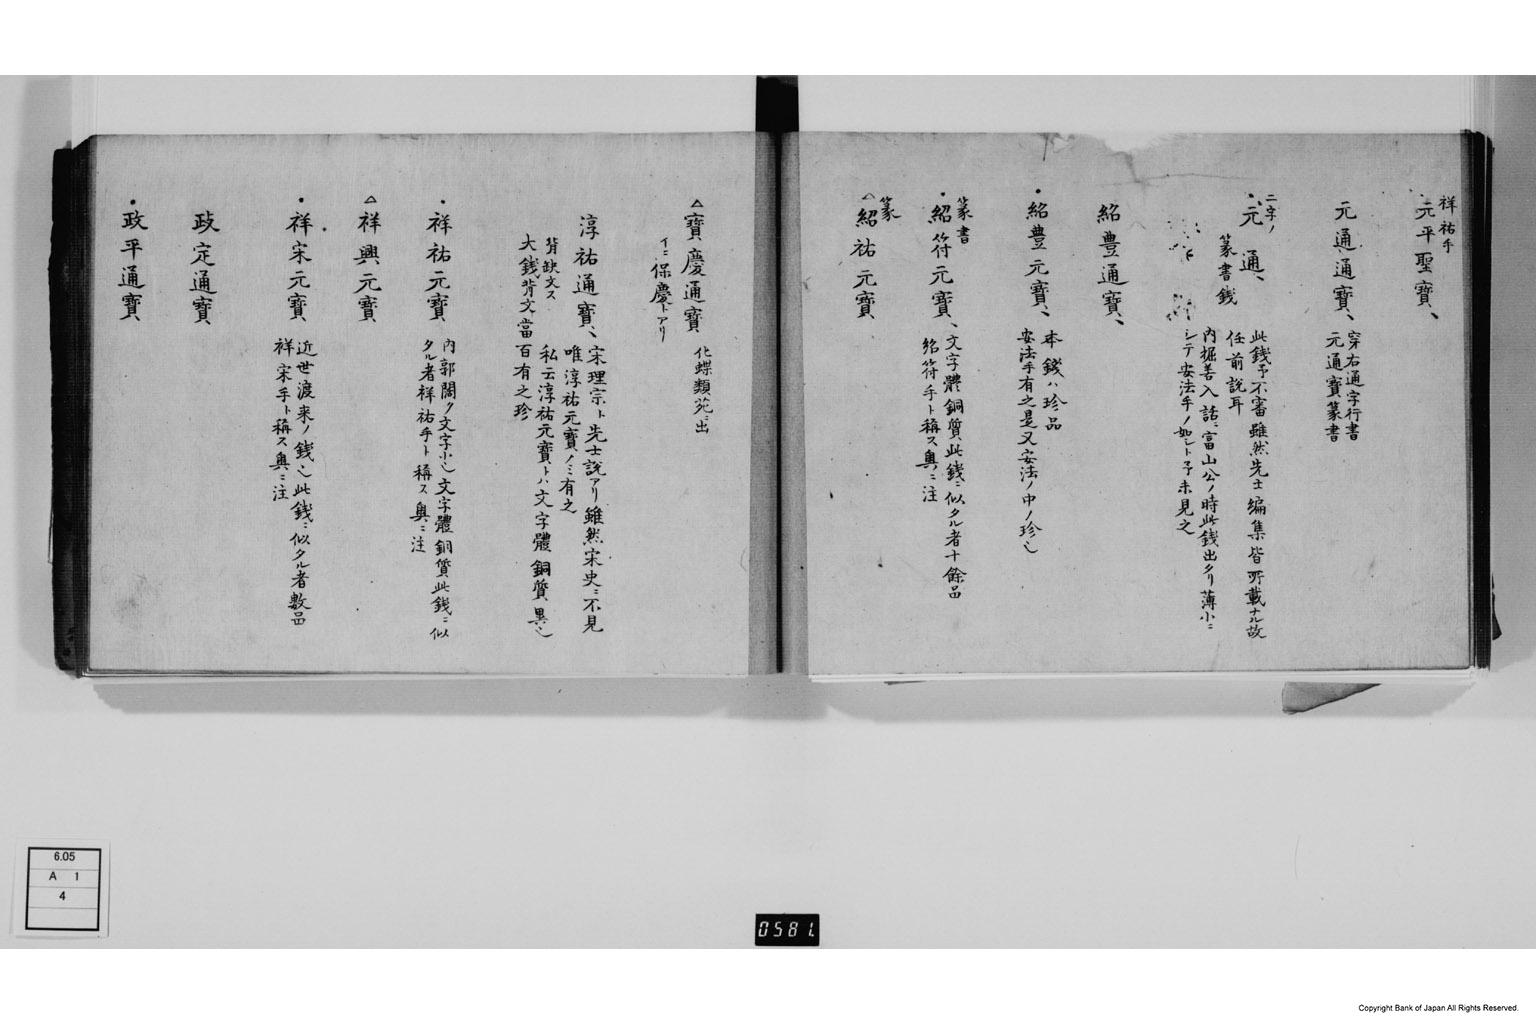 祥祐手
元平聖寳、
元通通寳、
穿右通字行書
元通寳篆書
二字ノ
元通、
篆書銭
此銭予不審雖然先士編集皆所載ナル故
任前説耳
内堀善入話ニ富山公ノ時此銭出タリ薄小ニ
シテ安法手ノ如シト予未見之
紹豊通寳、
紹豊元寳、
本銭ハ珍品
安法手有之是又安法ノ中ノ珍也
篆書
紹符元寳、
文字體銅質此銭ニ似タル者十餘品
紹符手ト稱ス奥ニ注
篆
△紹祐元寳
△寳慶通寳
化蝶類苑ニ出
イニ保慶トアリ
淳祐通寳、
宋理宗ト先士説アリ雖然宋史ニ不見
唯淳祐元寳ノミ有之
私云淳祐元寳トハ文字體銅質異也
背缺文ス
大銭背文當百有之珍
祥祐元寳
内郭闊ク文字小也文字體銅質此銭ニ似
タル者祥祐手ト稱ス奥ニ注
△祥興元寳
祥宋元寳
近世渡来ノ銭也此銭ニ似タル者數品
祥宋手ト稱ス奥ニ注
政定通寳
政平通寳
6.05
A 1
4
0581
Copyright Bank of Japan All Rights Reserved.